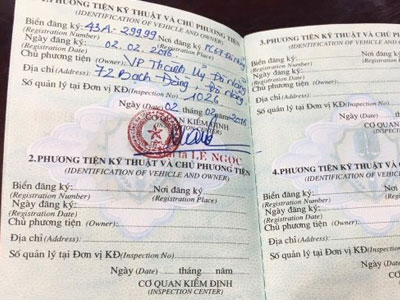 1.PHƯƠNG TIỆN KỸ THUẬT VÀ CHỦ PHƯƠNG TIỆN
(IDENTIFICATION OF VEHICLE AND OWNER)
Biển đăng ký: 43A-29999 Nơi đăng ký
(Registration Number) (Registration Place)
Ngày đăng ký: 02.02.2016
(Registration Date)
Chủ phương tiện (Owner): VP Thành Ủy Đà Nẵng
Địa chỉ (Address): 72 Bạch Đằng, Đà Nẵng
Số quản lý tại Đơn vị KĐ (Inspection No) 1026
Ngày (Date) 02 tháng 02 năm 2016
CƠ QUAN KIỂM ĐỊNH
LÊ NGỌC
2.PHƯƠNG TIỆN KỸ THUẬT VÀ CHỦ PHƯƠNG TIỆN
(IDENTIFICATION OF VEHICLE AND OWNER)
Biển đăng ký: Nơi đăng ký
(Registration Number) (Registration Place)
Ngày đăng ký:
(Registration Date)
Chủ phương tiện (Owner):
Địa chỉ(Address):
Số quản lý tại Đơn vị KĐ(Inspection No)
Ngày (Date) tháng năm
CƠ QUAN KIỂM ĐỊNH
(INSPECTION CENTER)
3.PHƯƠNG TIỆN KỸ THUẬT
(IDENTIFICATION
Biển đăng ký:
(Registration Number)
Ngày đăng ký:
(Registration Date)
Chủ phương tiện (Owner):
Địa chỉ(Address):
Số quản lý tại Đơn vị KĐ
Ngày (Date)
CƠ QUAN
(INSPECTION
4.PHƯƠNG TIỆN KỸ THUẬT
(IDENTIFICATION
Biển đăng ký:
(Registration Number)
Ngày đăng ký:
(Registration Date)
Chủ phương tiện (Owner):
Địa chỉ(Address):
Số quản lý tại Đơn vị KĐ(Inspection
Ngày (Date)
CƠ QUAN KIỂM
(INSPECTION